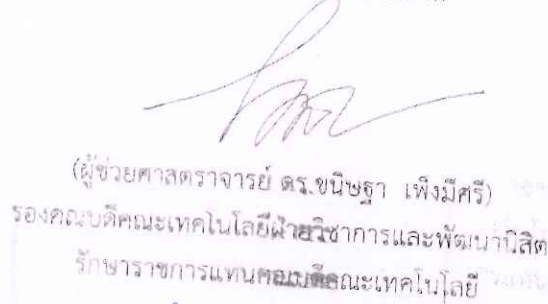 (ผู้ช่วยศาสตราจารย์ ดร.ขนิษฐา เพ็งมีศรี)
รองคณบดีคณะเทคโนโลยีฝ่ายวิชาการและพัฒนานิสิต
รักษาราชการแทนคณบดีคณะเทคโนโลยี